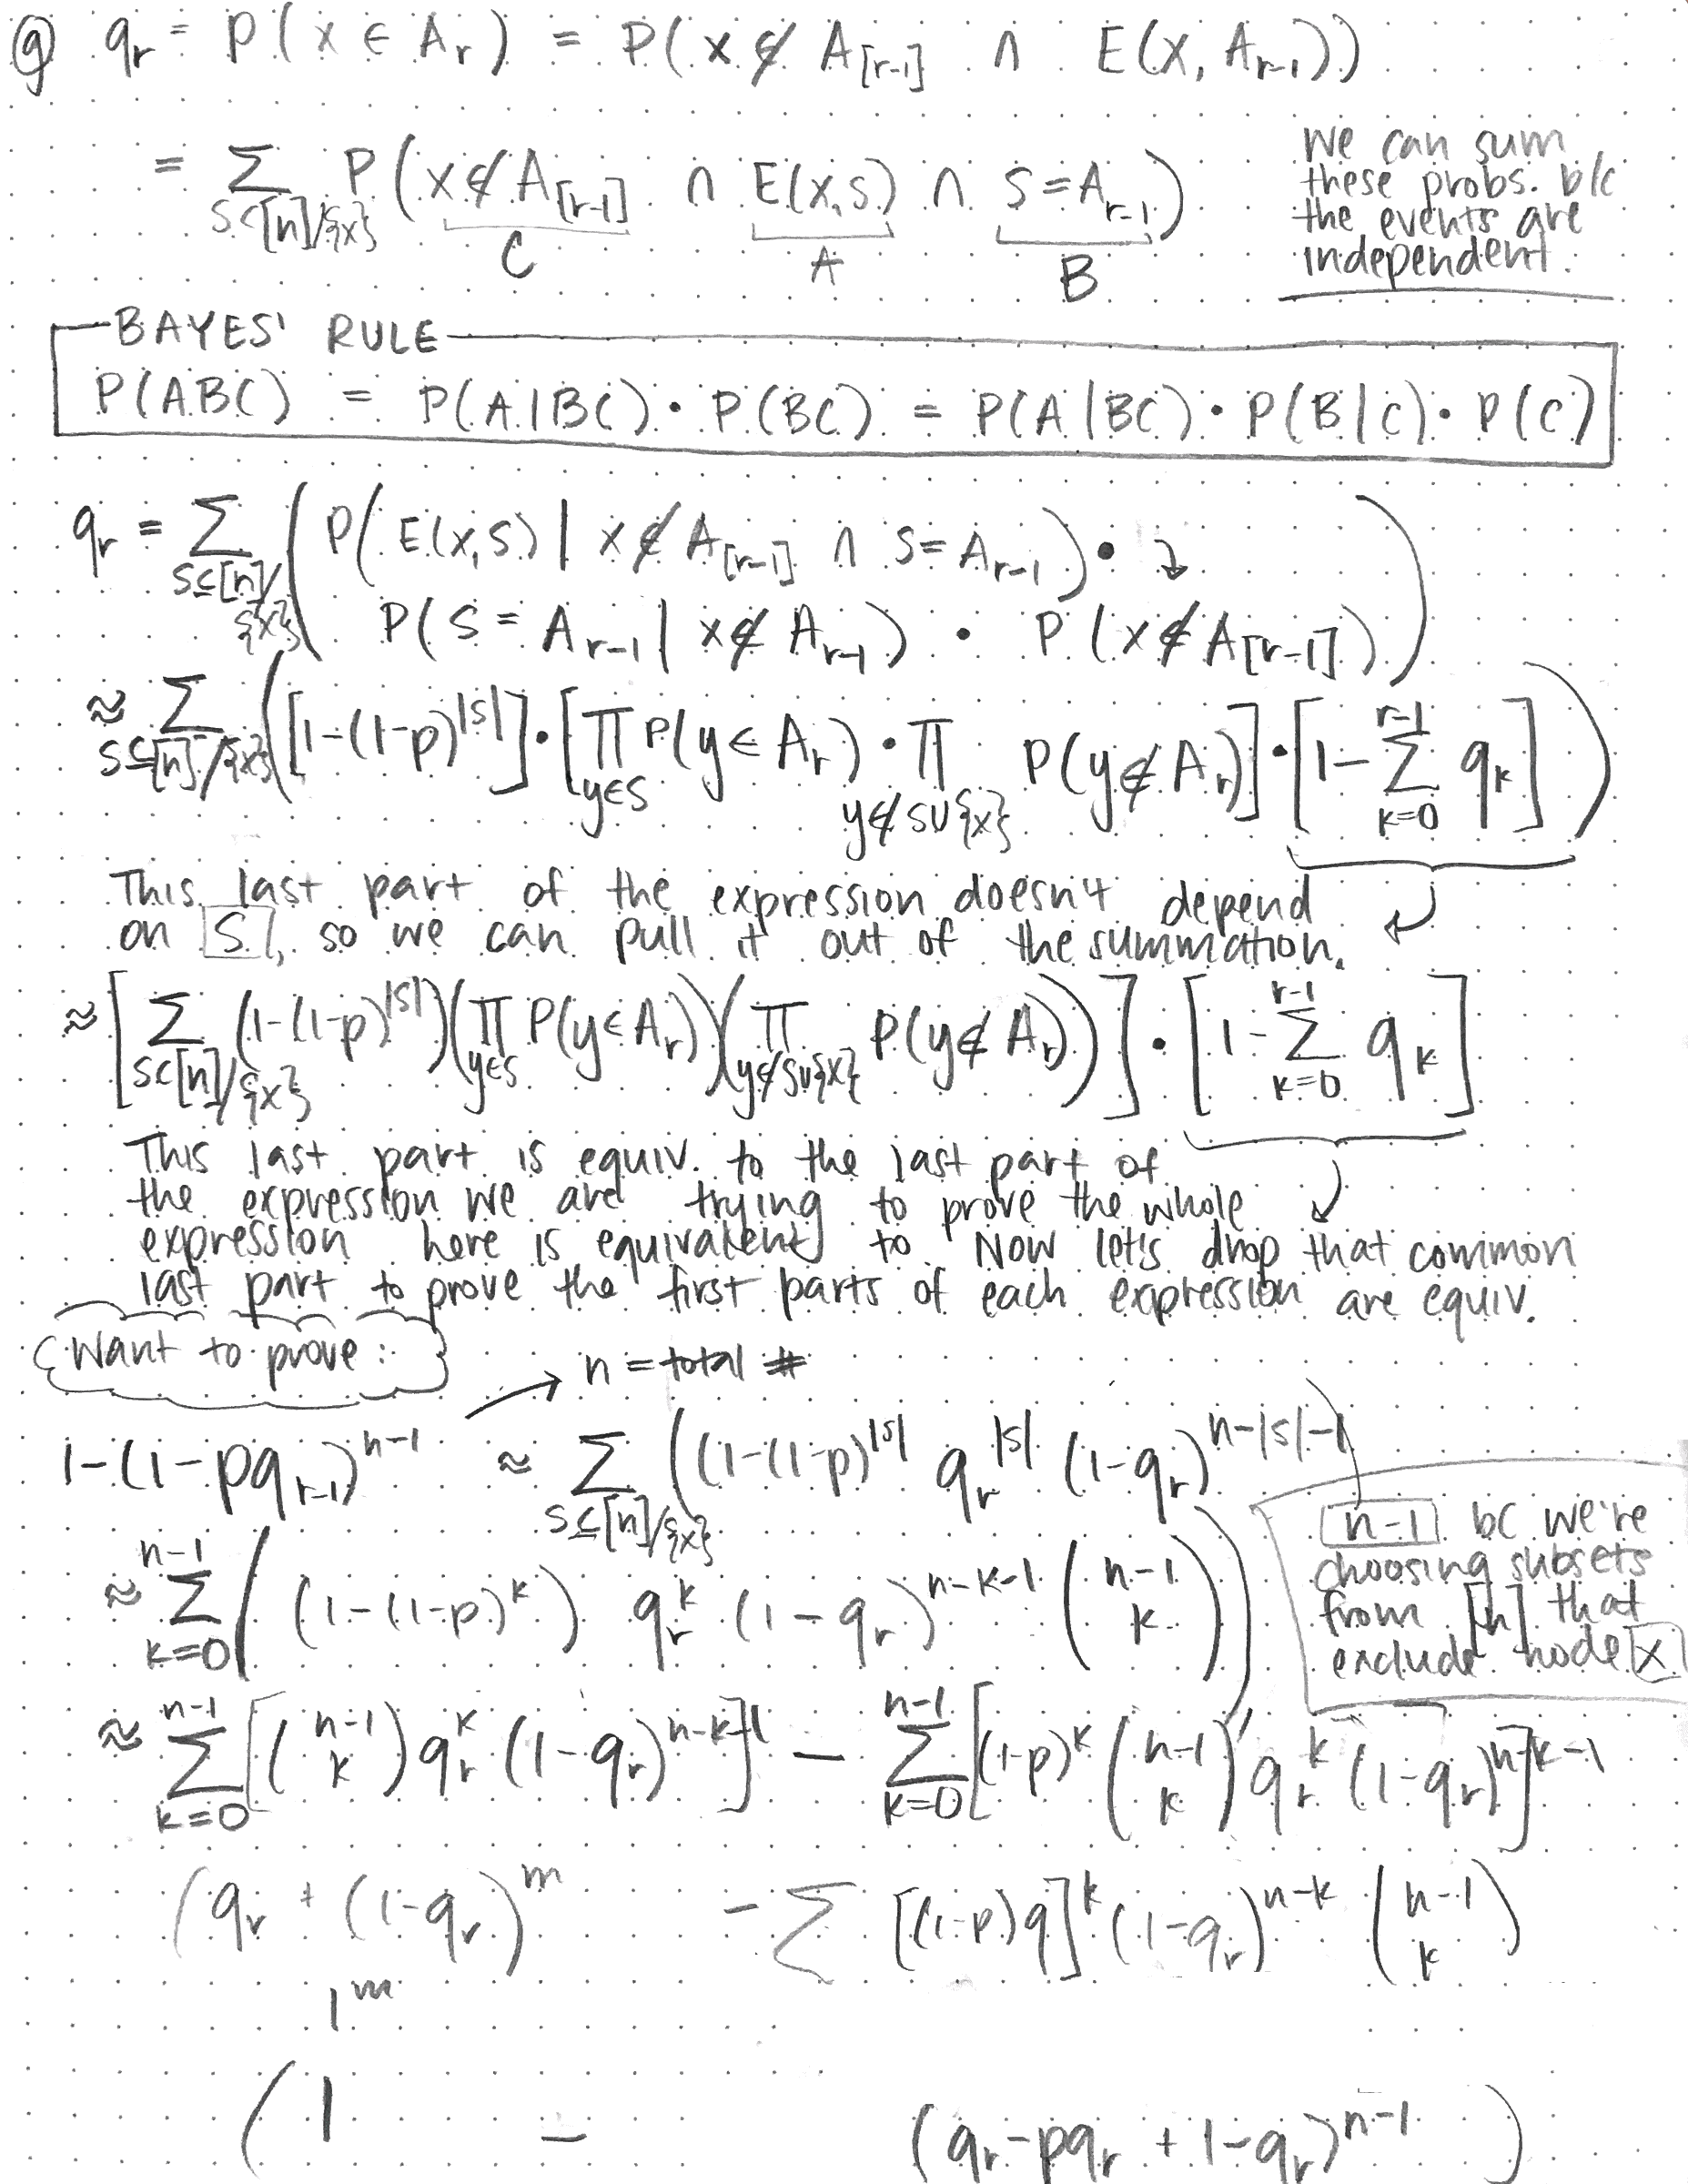 g) q_r = P(x ∈ A_r) = P(x ∉ A_[r-1] ∩ E(x, A_{r-1}))
= Σ_{S⊂[n]/{x}} P(x ∉ A_[r-1] ∩ E(x,S) ∩ S = A_{r-1})
C A B
we can sum
these probs. b/c
the events are
independent.
BAYES' RULE
P(ABC) = P(A|BC) · P(BC) = P(A|BC) · P(B|C) · P(C)
q_r = Σ_{S⊆[n]/{x}} ( P(E(x,S) | x ∉ A_[r-1] ∩ S = A_{r-1}) · ↴
P(S = A_{r-1} | x ∉ A_{r-1}) · P(x ∉ A_[r-1]) )
≈ Σ_{S⊆[n]/{x}} ( [1-(1-p)^|S|] · [∏_{y∈S} P(y ∈ A_r) · ∏_{y∉S∪{x}} P(y ∉ A_r)] · [1 - Σ_{k=0}^{r-1} q_k] )
This last part of the expression doesn't depend
on S, so we can pull it out of the summation.
≈ [ Σ_{S⊂[n]/{x}} (1-(1-p)^|S|) (∏_{y∈S} P(y∈A_r)) (∏_{y∉S∪{x}} P(y∉A_r)) ] · [1 - Σ_{k=0}^{r-1} q_k]
This last part is equiv. to the last part of
the expression we are trying to prove the whole
expression here is equivalent to Now let's drop that common
last part to prove the first parts of each expression are equiv.
Want to prove: → n = total #
1-(1-pq_{r-1})^{n-1} ≈ Σ_{S⊆[n]/{x}} ((1-(1-p)^|S| q_r^|S| (1-q_r)^{n-|S|-1}
≈ Σ_{k=0}^{n-1} ( (1-(1-p)^k) q_r^k (1-q_r)^{n-k-1} (n-1 k) )
n-1 bc we're
choosing subsets
from [n] that
exclude node x
≈ Σ_{k=0}^{n-1} [(n-1 k) q_r^k (1-q_r)^{n-k-1}] - Σ_{k=0}^{n-1} [(1-p)^k (n-1 k) q_r^k (1-q_r)^{n-k-1}]
(q_r + (1-q_r)^m - Σ [(1-p)q]^k (1-q_r)^{n-k} (n-1 k)
1^m
(1 - (q_r - pq_r + 1 - q_r)^{n-1} )